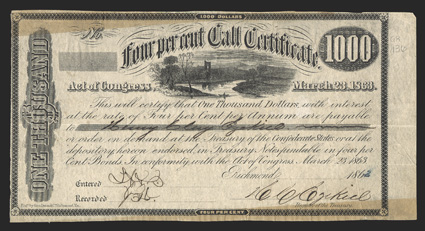 1000 DOLLARS
No.
Four per cent Call Certificate
1000
Act of Congress March 23, 1863.
ONE THOUSAND
This will certify that One Thousand Dollars, with interest
at the rate of Four per Cent per Annum are payable
to
or order on demand at the Treasury of the Confederate States, or at the
depository hereon endorsed in Treasury Notes fundable in four per
Cent Bonds In conformity with the Act of Congress March 23 1863
Richmond 186
Entered
Recorded
FOUR PER CENT